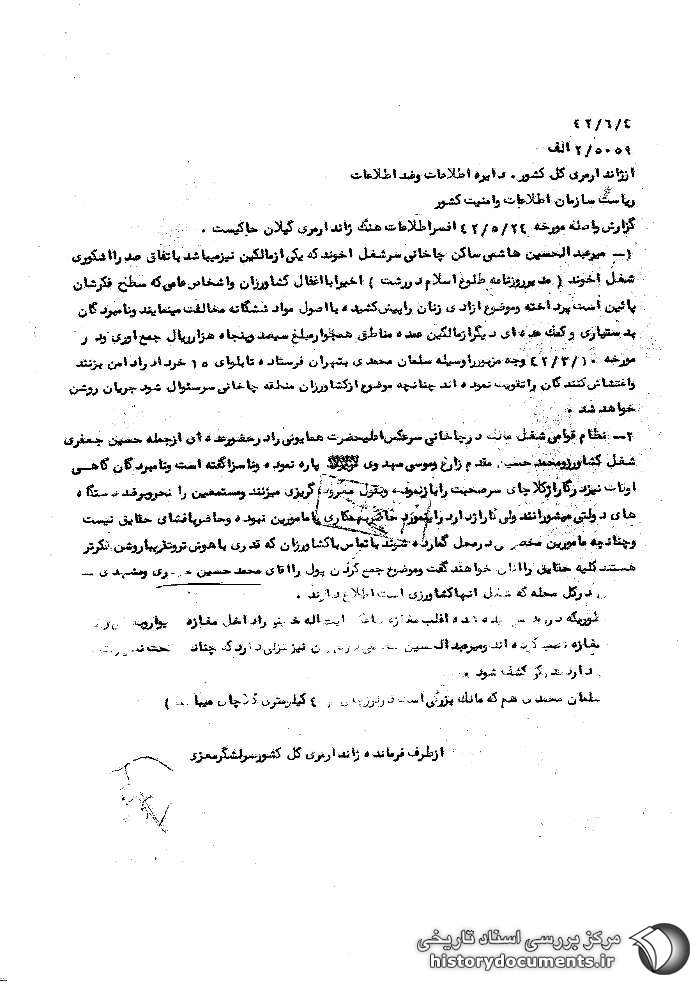 ۴۲/۶/۴
۲/۵۰۵۹ الف
از ژاندارمری کل کشور . دایره اطلاعات وضد اطلاعات
ریاست سازمان اطلاعات وامنیت کشور
گزارش واصله مورخه ۴۲/۵/۲۴ افسر اطلاعات هنگ ژاندارمری گیلان حاکیست .
۱— میرعبدالحسین هاشمی ساکن چاخانی سرشغل اخوند که یکی از مالکین نیز میباشد باتفاق صدر اشکوری
شغل اخوند ( مدیر روزنامه طلوع اسلام در رشت ) اخیرا باغفال کشاورزان واشخاص عامی که سطح فکرشان
پائین است پرداخته وموضوع ازادی زنان را پیش کشیده با اصول مواد ششگانه مخالفت مینمایند ونامبردگان
بدستیاری وکمک عده ای دیگر از مالکین عمده مناطق همجوار مبلغ سیصد وپنجاه هزار ریال جمع اوری ودر
مورخه ۴۲/۳/۱۰ وجه مزبور را وسیله سلمان محمدی بتهران فرستاده تا بلوای ۱۵ خرداد را دامن بزنند
واغتشاش کنندگان را تقویت نموده اند چنانچه موضوع از کشاورزان منطقه چاخانی سرسئوال شود جریان روشن
خواهد شد .
۲— نظام قوامی شغل مالک در چاخانی سرعکس اعلیحضرت همایونی را در حضور عده ای از جمله حسین جعفری
شغل کشاورز ومحمد حسین مقدم زارع وموسی مهدوی پاره نموده وناسزا گفته است ونامبردگان گاهی
اوقات نیز در گاراژ کلاچای سرصحبت را باز نموده وبقول گریزی میزنند ومستمعین را نحوی بر ضد دستگاه
های دولتی میشورانند ولی گاراژدار در اینمورد حاضر بهمکاری با مامورین نبوده وحاضر بافشای حقایق نیست
وچنانچه مامورین مخصوصی در محل گمارده شوند با تماس با کشاورزان که قدری با هوش تر وتقریبا روشن فکرتر
هستند کلیه حقایق را بانان خواهند گفت وموضوع جمع کردن پول را اقای محمد حسین ومشهدی
در کل محله که شغل انها کشاورزی است اطلاع دارند .
طوریکه شده اغلب مغازه ایت اله خمینی را داخل مغازه
مغازه نصب کرده اند ومیرعبدالحسین نیز منزلی دارد که چنانچه تحت
کشف شود .
سلمان محمدی هم که مالک بزرگی است در ۴ کیلومتری کلاچای میباشد )
از طرف فرمانده ژاندارمری کل کشور سرلشگر معزی
مرکز بررسی اسناد تاریخی
historydocuments.ir